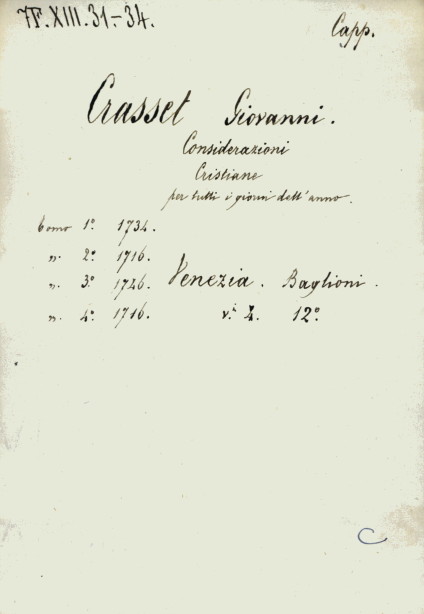 7F.XIII.31-34.
Capp.
Crasset Giovanni.
Considerazioni
Cristiane
per tutti i giorni dell'anno.
Tomo 1º 1734.
n. 2º 1716.
n. 3º 1726. Venezia. Baglioni.
n. 4º 1716. v.i 4. 12º
C